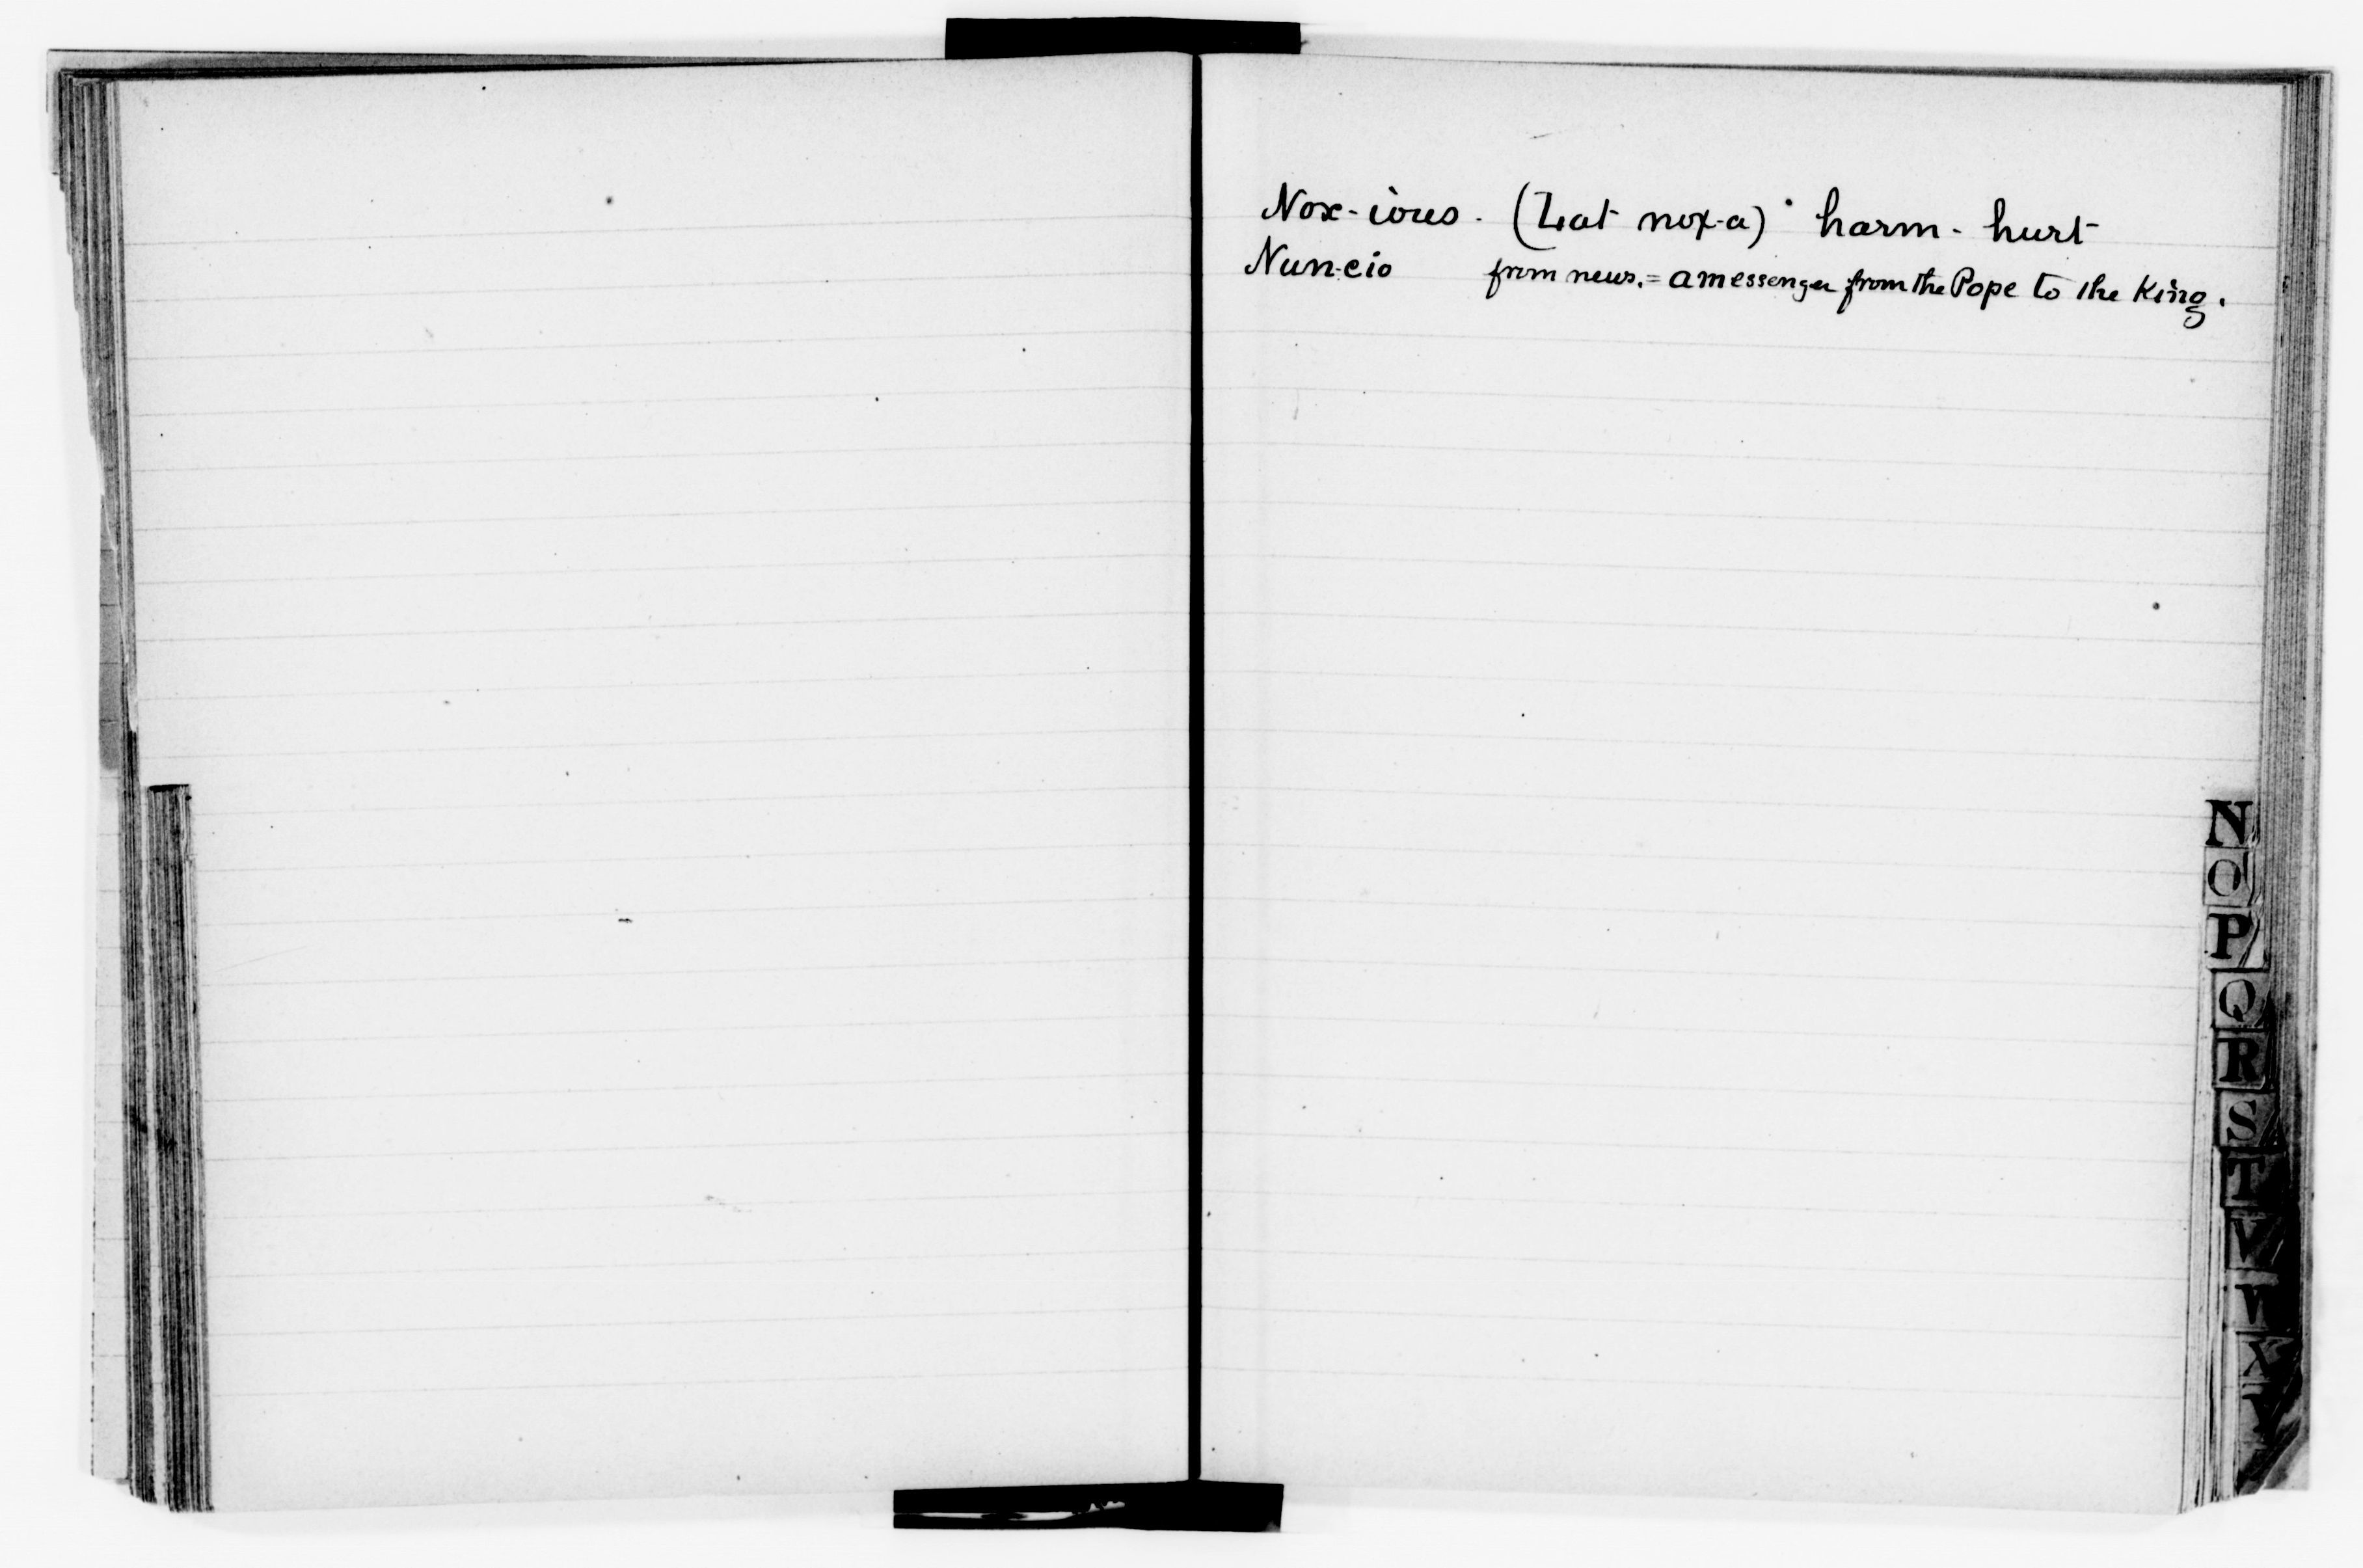 Nox-ious. (Lat nox-a) harm - hurt
Nun-cio from news. = a messenger from the Pope to the King.
N
O
P
Q
R
S
T
V
W
X
Y